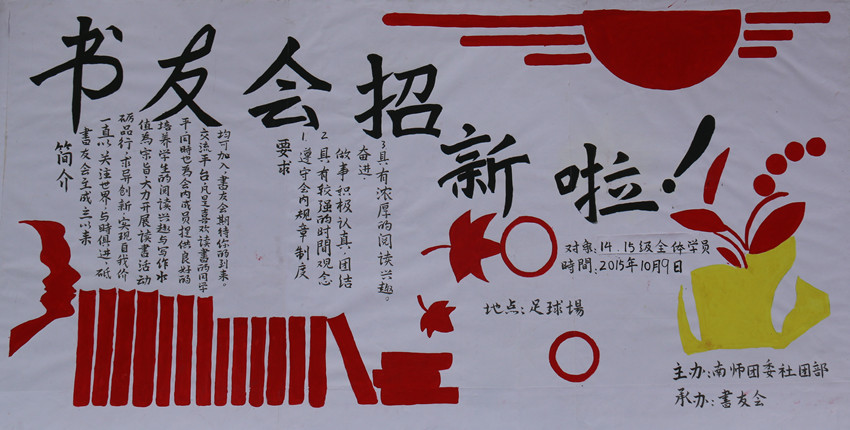 书友会招
新啦！
简介
書友会至成立以来
一直以关注世界，与時俱进，砥
砺品行，求异创新，实现自我价
值為宗旨，大力开展读書活动
培养学生的阅读兴趣与写作水
平同時也為会内成员提供良好的
交流平台，凡是喜欢读書的同学
均可加入，書友会期待你的到来。
要求
1.遵守会内规章制度
2.具有较强的时間观念
做事积极认真，团结
奋进.
3.具有浓厚的阅读兴趣。
对象：14.15级全体学员
時間：2015年10月9日
地点：足球場
主办：南师团委社团部
承办：書友会